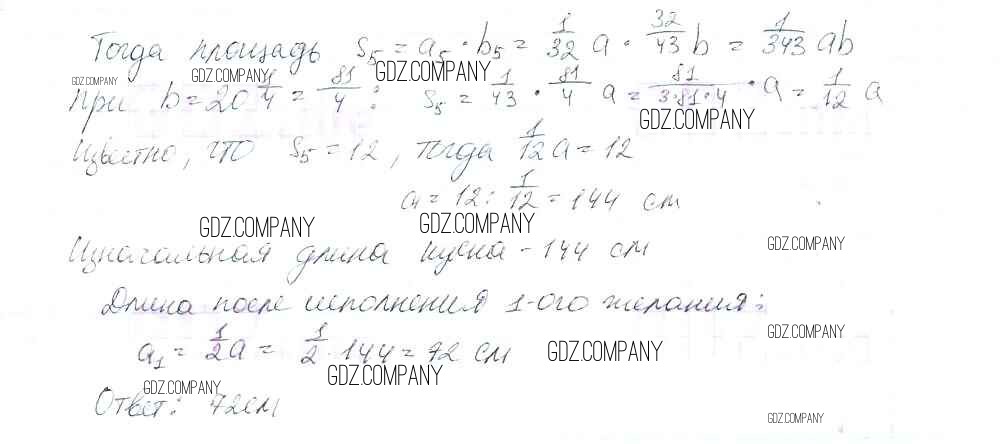 Тогда площадь S₅ = a₅ · b₅ = 1/32 a · 32/43 b = 1/343 ab
GDZ.COMPANY GDZ.COMPANY GDZ.COMPANY
При b = 20 1/4 = 81/4 : S₅ = 1/43 · 81/4 a = 81/3·81·4 · a = 1/12 a
GDZ.COMPANY
Известно, что S₅ = 12, тогда 1/12 a = 12
a = 12 : 1/12 = 144 см
GDZ.COMPANY GDZ.COMPANY GDZ.COMPANY
Изначальная длина куска - 144 см
Длина после исполнения 1-ого желания:
GDZ.COMPANY
a₁ = 1/2 a = 1/2 · 144 = 72 см
GDZ.COMPANY
GDZ.COMPANY GDZ.COMPANY
Ответ: 72см
GDZ.COMPANY